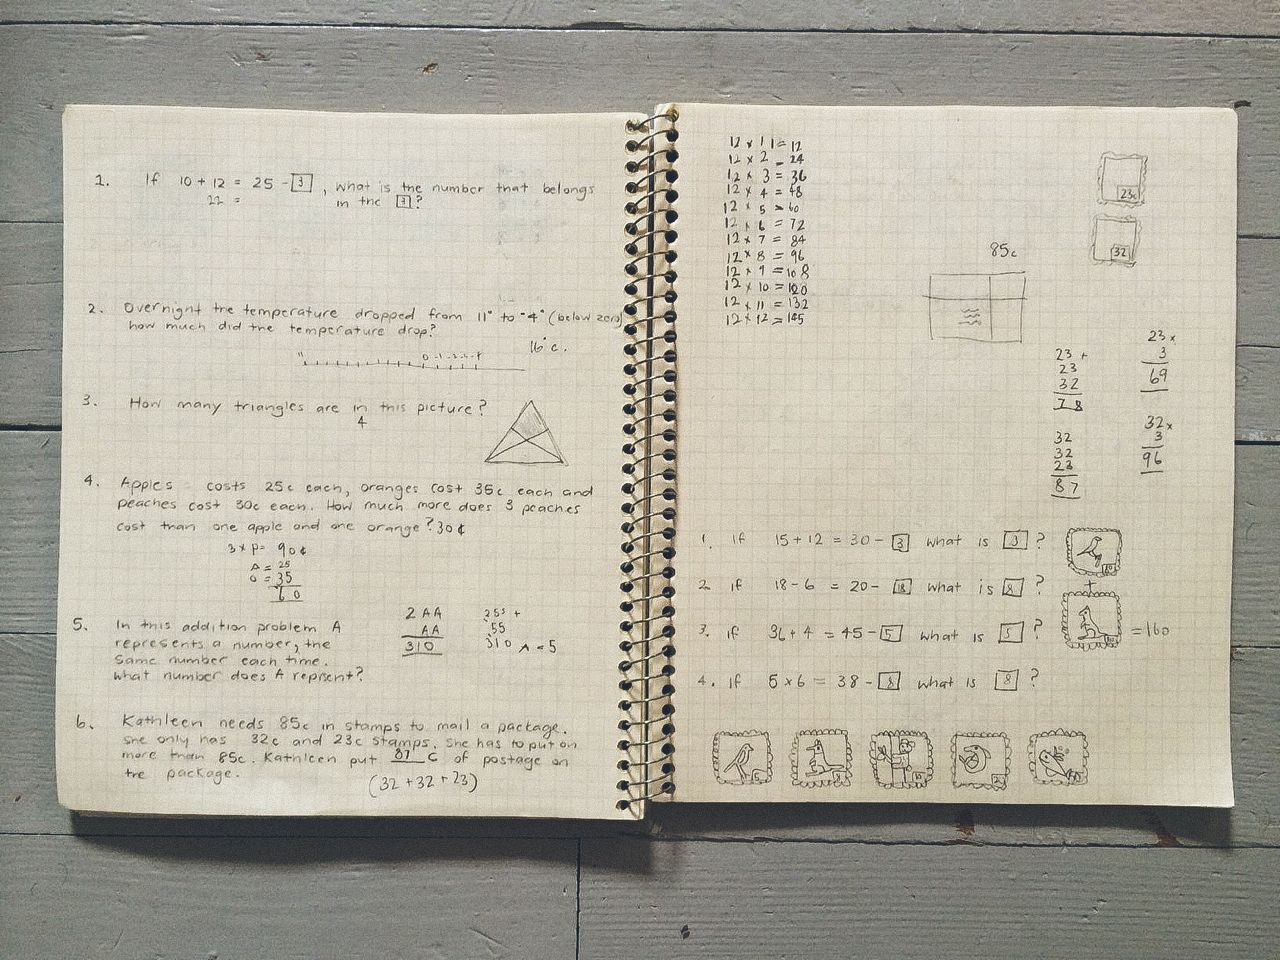 1. If 10 + 12 = 25 - 3 , what is the number that belongs
22 = in the 3 ?
2. Overnight the temperature dropped from 11° to -4° (below zero)
how much did the temperature drop?
16°c.
0 -1 -2 -3 -4
3. How many triangles are in this picture?
4
4. Apples costs 25c each, oranges cost 35c each and
peaches cost 30c each. How much more does 3 peaches
cost than one apple and one orange? 30¢
3 x P = 90¢
A = 25
O = 35
60
5. In this addition problem A
represents a number, the
same number each time.
what number does A repraent?
2AA
AA
310
255 +
55
310 A = 5
6. Kathleen needs 85c in stamps to mail a package.
She only has 32c and 23c stamps. She has to put on
more than 85c. Kathleen put 87 c of postage on
the package.
(32 + 32 + 23)
12 x 1 = 12
12 x 2 = 24
12 x 3 = 36
12 x 4 = 48
12 x 5 = 60
12 x 6 = 72
12 x 7 = 84
12 x 8 = 96
12 x 9 = 108
12 x 10 = 120
12 x 11 = 132
12 x 12 = 145
23c
32
85c
23 +
23
32
78
23 x
3
69
32
32
23
87
32 x
3
96
1. If 15 + 12 = 30 - 3 what is 3 ?
2 If 18 - 6 = 20 - 8 what is 8 ?
3. If 36 + 4 = 45 - 5 what is 5 ?
4. If 5 x 6 = 38 - 8 what is 8 ?
+
= 160